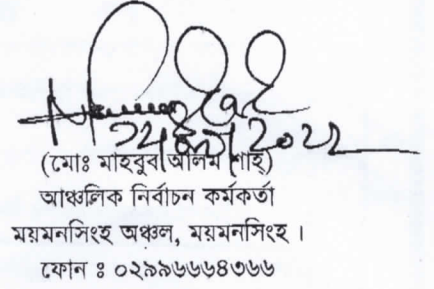 (মোঃ মাহবুব আলম শাহ্)
আঞ্চলিক নির্বাচন কর্মকর্তা
ময়মনসিংহ অঞ্চল, ময়মনসিংহ ।
ফোন ঃ ০২৯৯৬৬৬৪৩৬৬